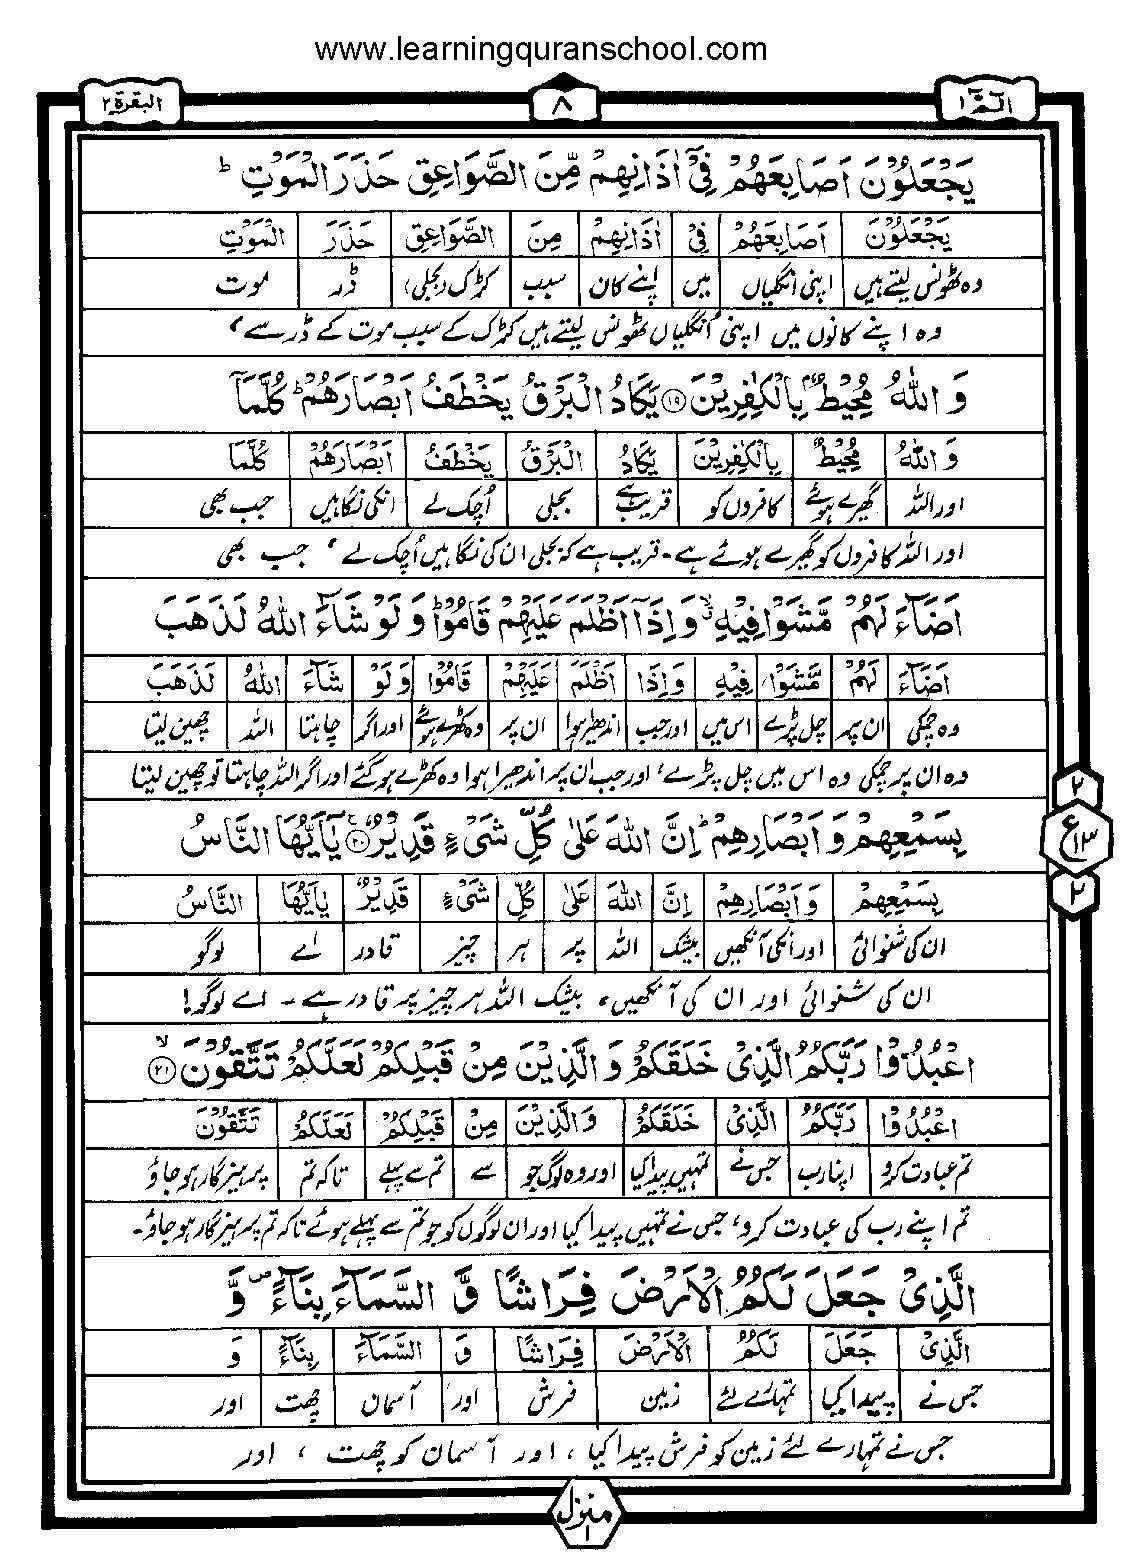 www.learningquranschool.com
الٓمّٓ ١ ٨ البقرة ٢
يَجْعَلُوْنَ اَصَابِعَهُمْ فِیْۤ اٰذَانِهِمْ مِّنَ الصَّوَاعِقِ حَذَرَ الْمَوْتِ ؕ
يَجْعَلُوْنَ اَصَابِعَهُمْ فِیْ اٰذَانِهِمْ مِنَ الصَّوَاعِقِ حَذَرَ الْمَوْتِ
وہ ٹھونس لیتے ہیں اپنی انگلیاں میں اپنے کان سبب کڑک (بجلی) ڈر موت
وہ اپنے کانوں میں اپنی انگلیاں ٹھونس لیتے ہیں کڑک کے سبب موت کے ڈر سے،
وَ اللّٰهُ مُحِيْطٌۢ بِالْكٰفِرِيْنَ ﴿۱۹﴾ يَكَادُ الْبَرْقُ يَخْطَفُ اَبْصَارَهُمْ ؕ كُلَّمَاۤ
وَ اللّٰهُ مُحِيْطٌ بِالْكٰفِرِيْنَ يَكَادُ الْبَرْقُ يَخْطَفُ اَبْصَارَهُمْ كُلَّمَا
اور اللہ گھیرے ہوئے کافروں کو قریب ہے بجلی اُچک لے انکی نگاہیں جب بھی
اور اللہ کافروں کو گھیرے ہوئے ہے۔ قریب ہے کہ بجلی ان کی نگاہیں اُچک لے، جب بھی
اَضَآءَ لَهُمْ مَّشَوْا فِيْهِ ۙ وَ اِذَاۤ اَظْلَمَ عَلَيْهِمْ قَامُوْا ؕ وَ لَوْ شَآءَ اللّٰهُ لَذَهَبَ
اَضَآءَ لَهُمْ مَّشَوْا فِيْهِ وَاِذَا اَظْلَمَ عَلَيْهِمْ قَامُوْا وَ لَوْ شَآءَ اللّٰهُ لَذَهَبَ
وہ چمکی ان پر چل پڑے اس میں اور جب اندھیرا ہوا ان پر وہ کھڑے ہوئے اور اگر چاہتا اللہ چھین لیتا
وہ ان پر چمکی وہ اس میں چل پڑے، اور جب ان پر اندھیرا ہوا وہ کھڑے ہو گئے اور اگر اللہ چاہتا تو چھین لیتا
بِسَمْعِهِمْ وَ اَبْصَارِهِمْ ؕ اِنَّ اللّٰهَ عَلٰى كُلِّ شَیْءٍ قَدِيْرٌ ﴿۲۰﴾ يٰۤاَيُّهَا النَّاسُ
٢ ع ١٣ ٢
بِسَمْعِهِمْ وَ اَبْصَارِهِمْ اِنَّ اللّٰهَ عَلٰى كُلِّ شَیْءٍ قَدِيْرٌ يٰاَيُّهَا النَّاسُ
ان کی شنوائی اور انکی آنکھیں بیشک اللہ پر ہر چیز قادر اے لوگو
ان کی شنوائی اور ان کی آنکھیں، بیشک اللہ ہر چیز پر قادر ہے۔ اے لوگو!
اعْبُدُوْا رَبَّكُمُ الَّذِیْ خَلَقَكُمْ وَ الَّذِيْنَ مِنْ قَبْلِكُمْ لَعَلَّكُمْ تَتَّقُوْنَ ۙ﴿۲۱﴾
اعْبُدُوْا رَبَّكُمُ الَّذِیْ خَلَقَكُمْ وَ الَّذِيْنَ مِنْ قَبْلِكُمْ لَعَلَّكُمْ تَتَّقُوْنَ
تم عبادت کرو اپنا رب جس نے تمہیں پیدا کیا اور وہ لوگ جو سے تم سے پہلے تاکہ تم پرہیزگار ہو جاؤ
تم اپنے رب کی عبادت کرو، جس نے تمہیں پیدا کیا اور ان لوگوں کو جو تم سے پہلے ہوئے تاکہ تم پرہیزگار ہو جاؤ۔
الَّذِیْ جَعَلَ لَكُمُ الْاَرْضَ فِرَاشًا وَّ السَّمَآءَ بِنَآءً ۪ وَّ
الَّذِیْ جَعَلَ لَكُمُ الْاَرْضَ فِرَاشًا وَّ السَّمَآءَ بِنَآءً وَّ
جس نے پیدا کیا تمہارے لئے زمین فرش اور آسمان چھت اور
جس نے تمہارے لئے زمین کو فرش پیدا کیا، اور آسمان کو چھت، اور
منزل ١